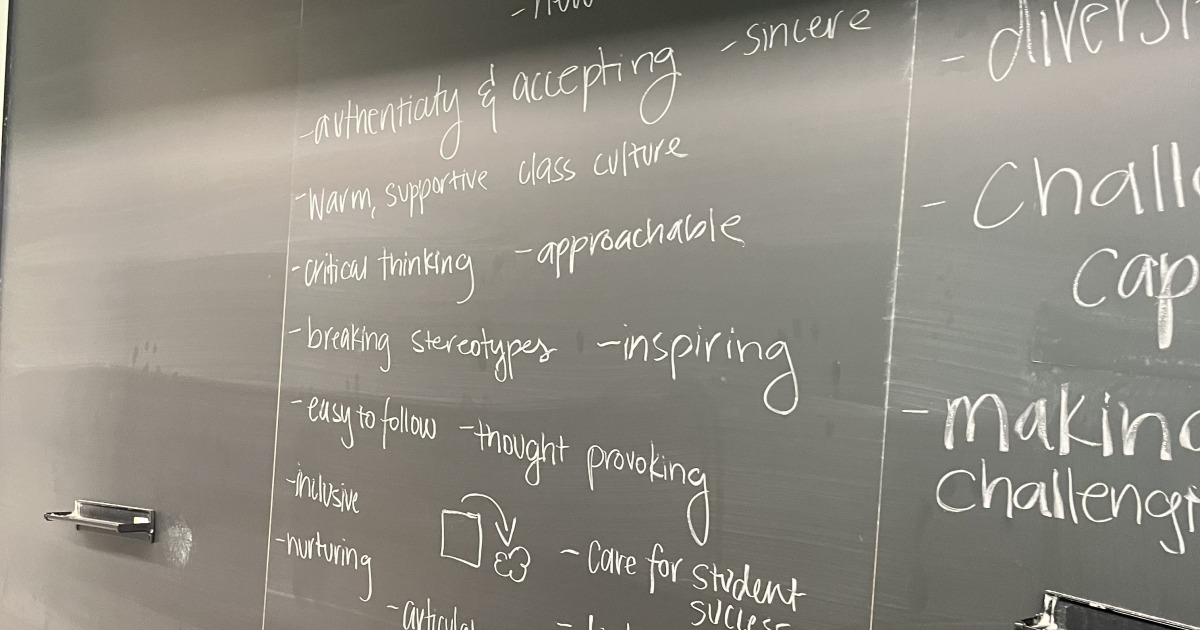 - authenticity & accepting - sincere
- warm, supportive class culture
- critical thinking - approachable
- breaking stereotypes - inspiring
- easy to follow - thought provoking
- inclusive
- nurturing
- care for student
success
-
-
- making